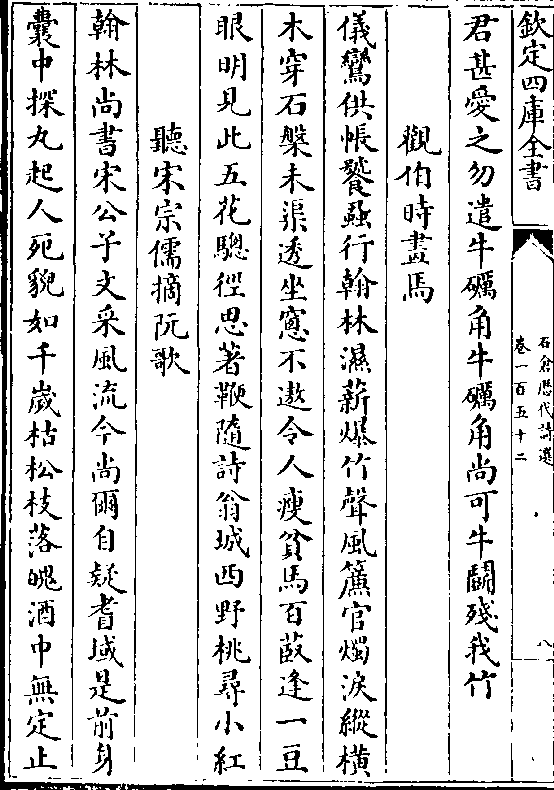 欽定四庫全書
石倉歷代詩選
卷一百五十二
八
君甚愛之勿遣牛礪角牛礪角尚可牛鬬殘我竹
觀伯時畫馬
儀鸞供帳饕蝨行翰林濕薪爆竹聲風簾官燭淚縱橫
木穿石槃未渠透坐窻不遨令人瘦貧馬百蔇逢一豆
眼明見此五花驄徑思著鞭隨詩翁城西野桃尋小紅
聽宋宗儒摘阮歌
翰林尚書宋公子文采風流今尚爾自疑耆域是前身
囊中探丸起人死貌如千歲枯松枝落魄酒中無定止